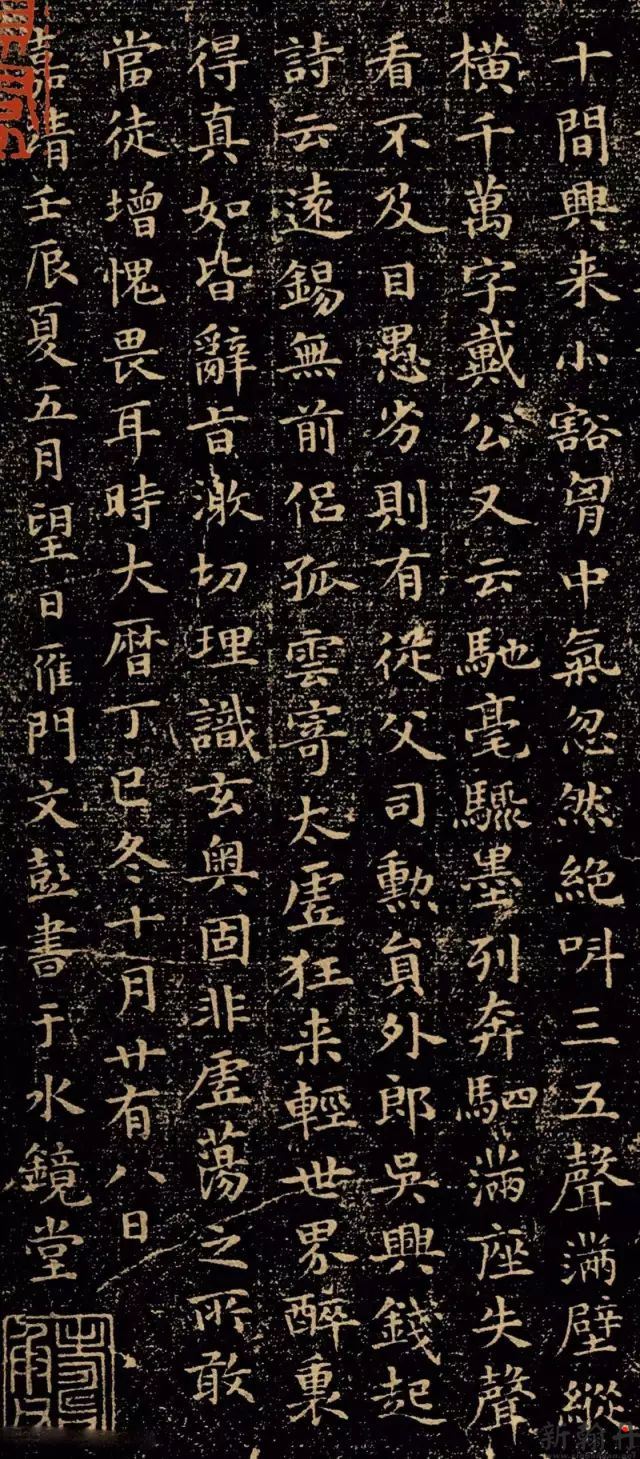 十間興来小豁胷中氣忽然絶呌三五聲滿壁縱
橫千萬字戴公又云馳毫驟墨列奔駟滿座失聲
看不及目愚劣則有從父司勲貟外郎吳興錢起
詩云遠錫無前侣孤雲寄太虛狂来輕世界醉裏
得真如皆辭旨激切理識玄奥固非虛蕩之所敢
當徒增愧畏耳時大曆丁巳冬十月廿有八日
嘉靖壬辰夏五月望日雁門文彭書于水鏡堂
新翰丹